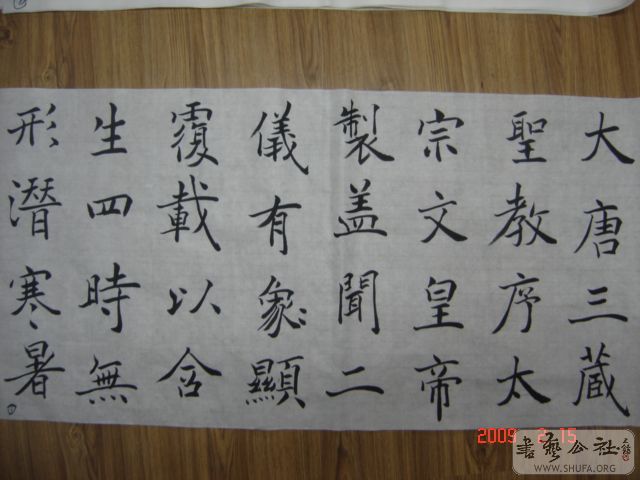 大唐三蔵
聖教序太
宗文皇帝
製盖聞二
儀有象顯
覆載以含
生四時無
形潛寒暑
2009 2 15
書藝公社
WWW.SHUFA.ORG